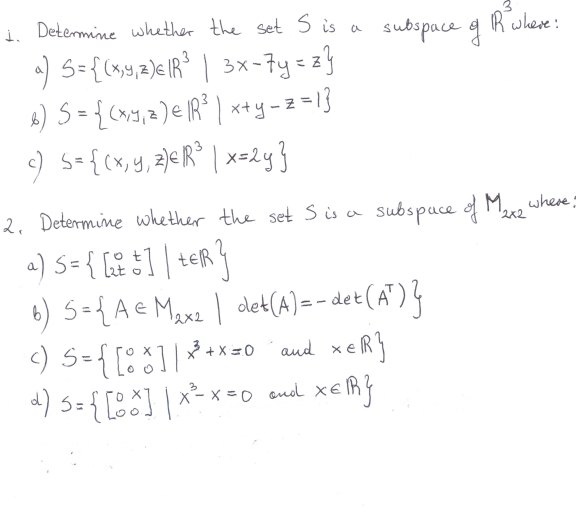 1. Determine whether the set S is a subspace of ℝ³ where:
a) S={(x,y,z)∈ℝ³ | 3x-7y=z}
b) S={(x,y,z)∈ℝ³ | x+y-z=1}
c) S={(x,y,z)∈ℝ³ | x=2y}
2. Determine whether the set S is a subspace of M₂ₓ₂ where:
a) S={[0 t; 2t 0] | t∈ℝ}
b) S={A∈M₂ₓ₂ | det(A)=-det(Aᵀ)}
c) S={[0 x; 0 0] | x³+x=0 and x∈ℝ}
d) S={[0 x; 0 0] | x³-x=0 and x∈ℝ}